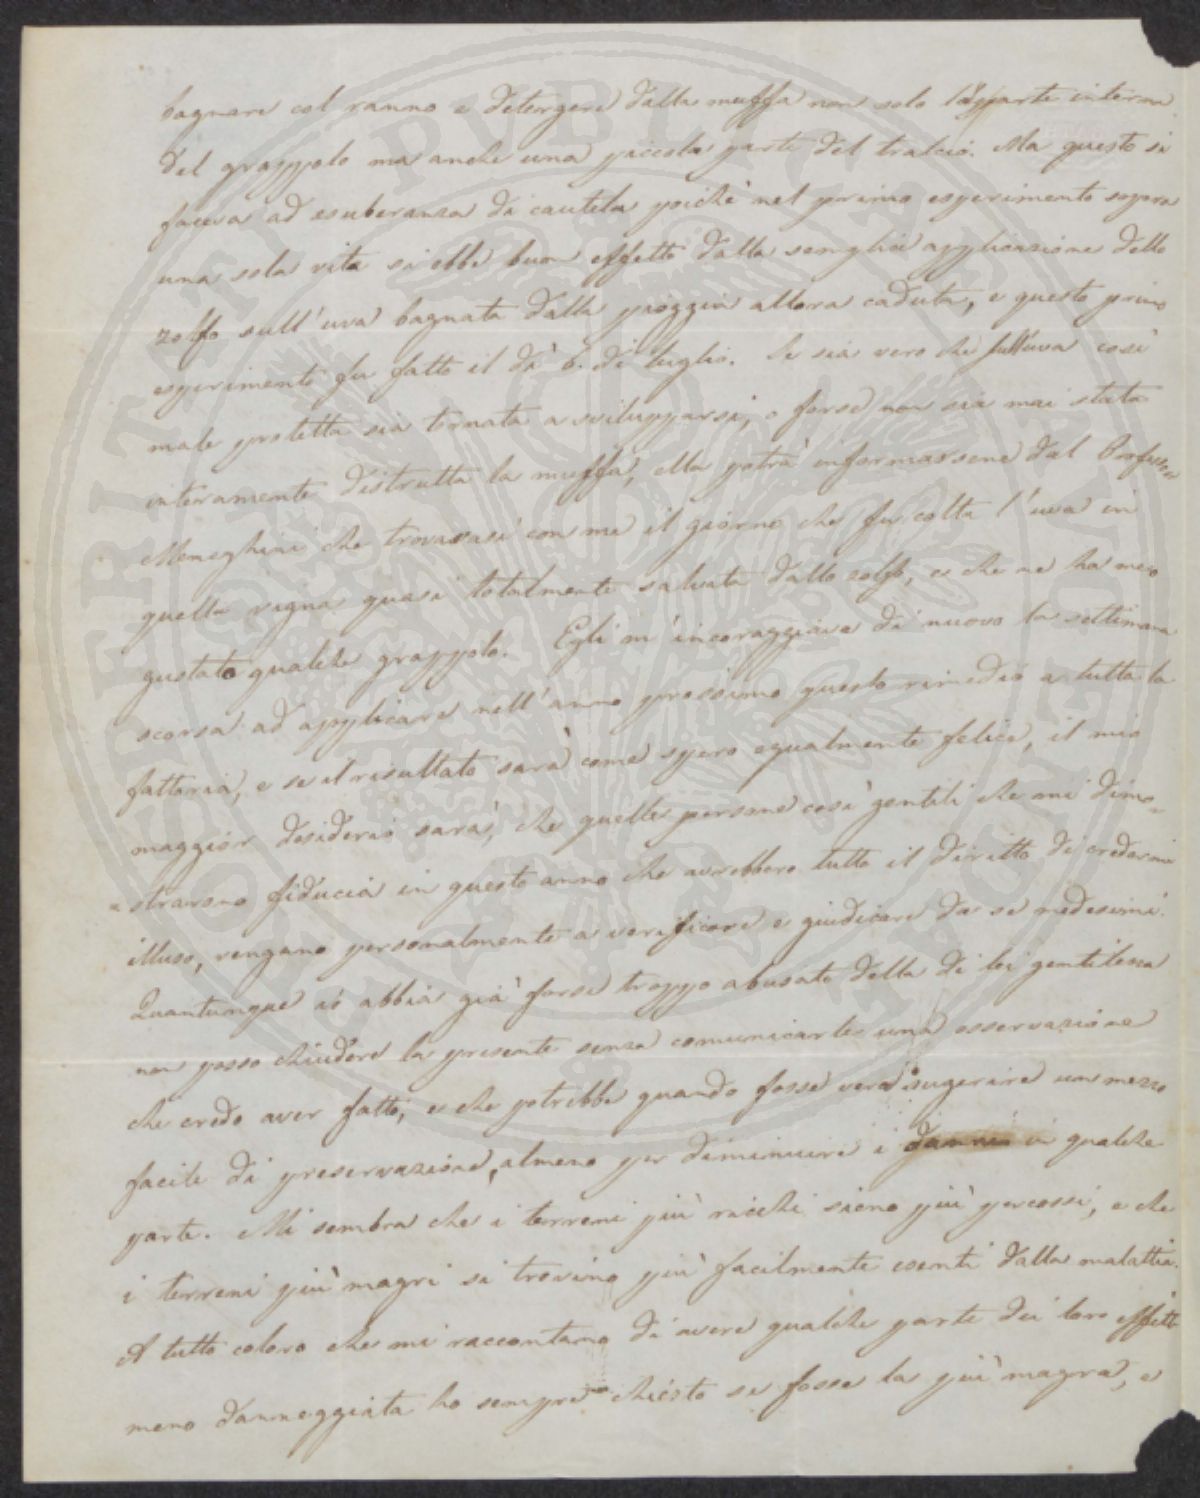 bagnare col ranno e detergere dalla muffa non solo la parte interna
del grappolo ma anche una piccola parte del tralcio. Ma questo si
faceva ad esuberanza di cautela poichè nel primo esperimento sopra
una sola vite si ebbe buon effetto dalla semplice applicazione dello
zolfo sull'uva bagnata dalla pioggia allora caduta, e questo primo
esperimento fu fatto il dì 6. di luglio. Se sia vero che sull'uva così
male protetta sia tornata a svilupparsi, o forse non sia mai stata
interamente distrutta la muffa, ella potrà informarsene dal Professor
Meneghini che trovavasi con me il giorno che fu colta l'uva in
quella vigna quasi totalmente salvata dallo zolfo, e che ne ha meco
gustato qualche grappolo. Egli m'incoraggiava di nuovo la settimana
scorsa ad applicare nell'anno prossimo questo rimedio a tutta la
fattoria, e se il risultato sarà come spero egualmente felice, il mio
maggior desiderio sarà, che quelle persone così gentili che mi dimo=
=strarono fiducia in questo anno che avrebbero tutto il diritto di credermi
illuso, vengano personalmente a verificare e giudicare da se medesimi.
Quantunque io abbia già forse troppo abusato della di lei gentilezza
non posso chiudere la presente senza comunicarle una osservazione
che credo aver fatto, e che potrebbe quando fosse vera sugerire un mezzo
facile di preservazione, almeno per diminuire i danni in qualche
parte. Mi sembra che i terreni più ricchi sieno più percossi, e che
i terreni più magri si trovino più facilmente esenti dalla malattia.
A tutti coloro che mi raccontano di avere qualche parte dei loro effetti
meno danneggiata ho sempre chiesto se fosse la più magra, e